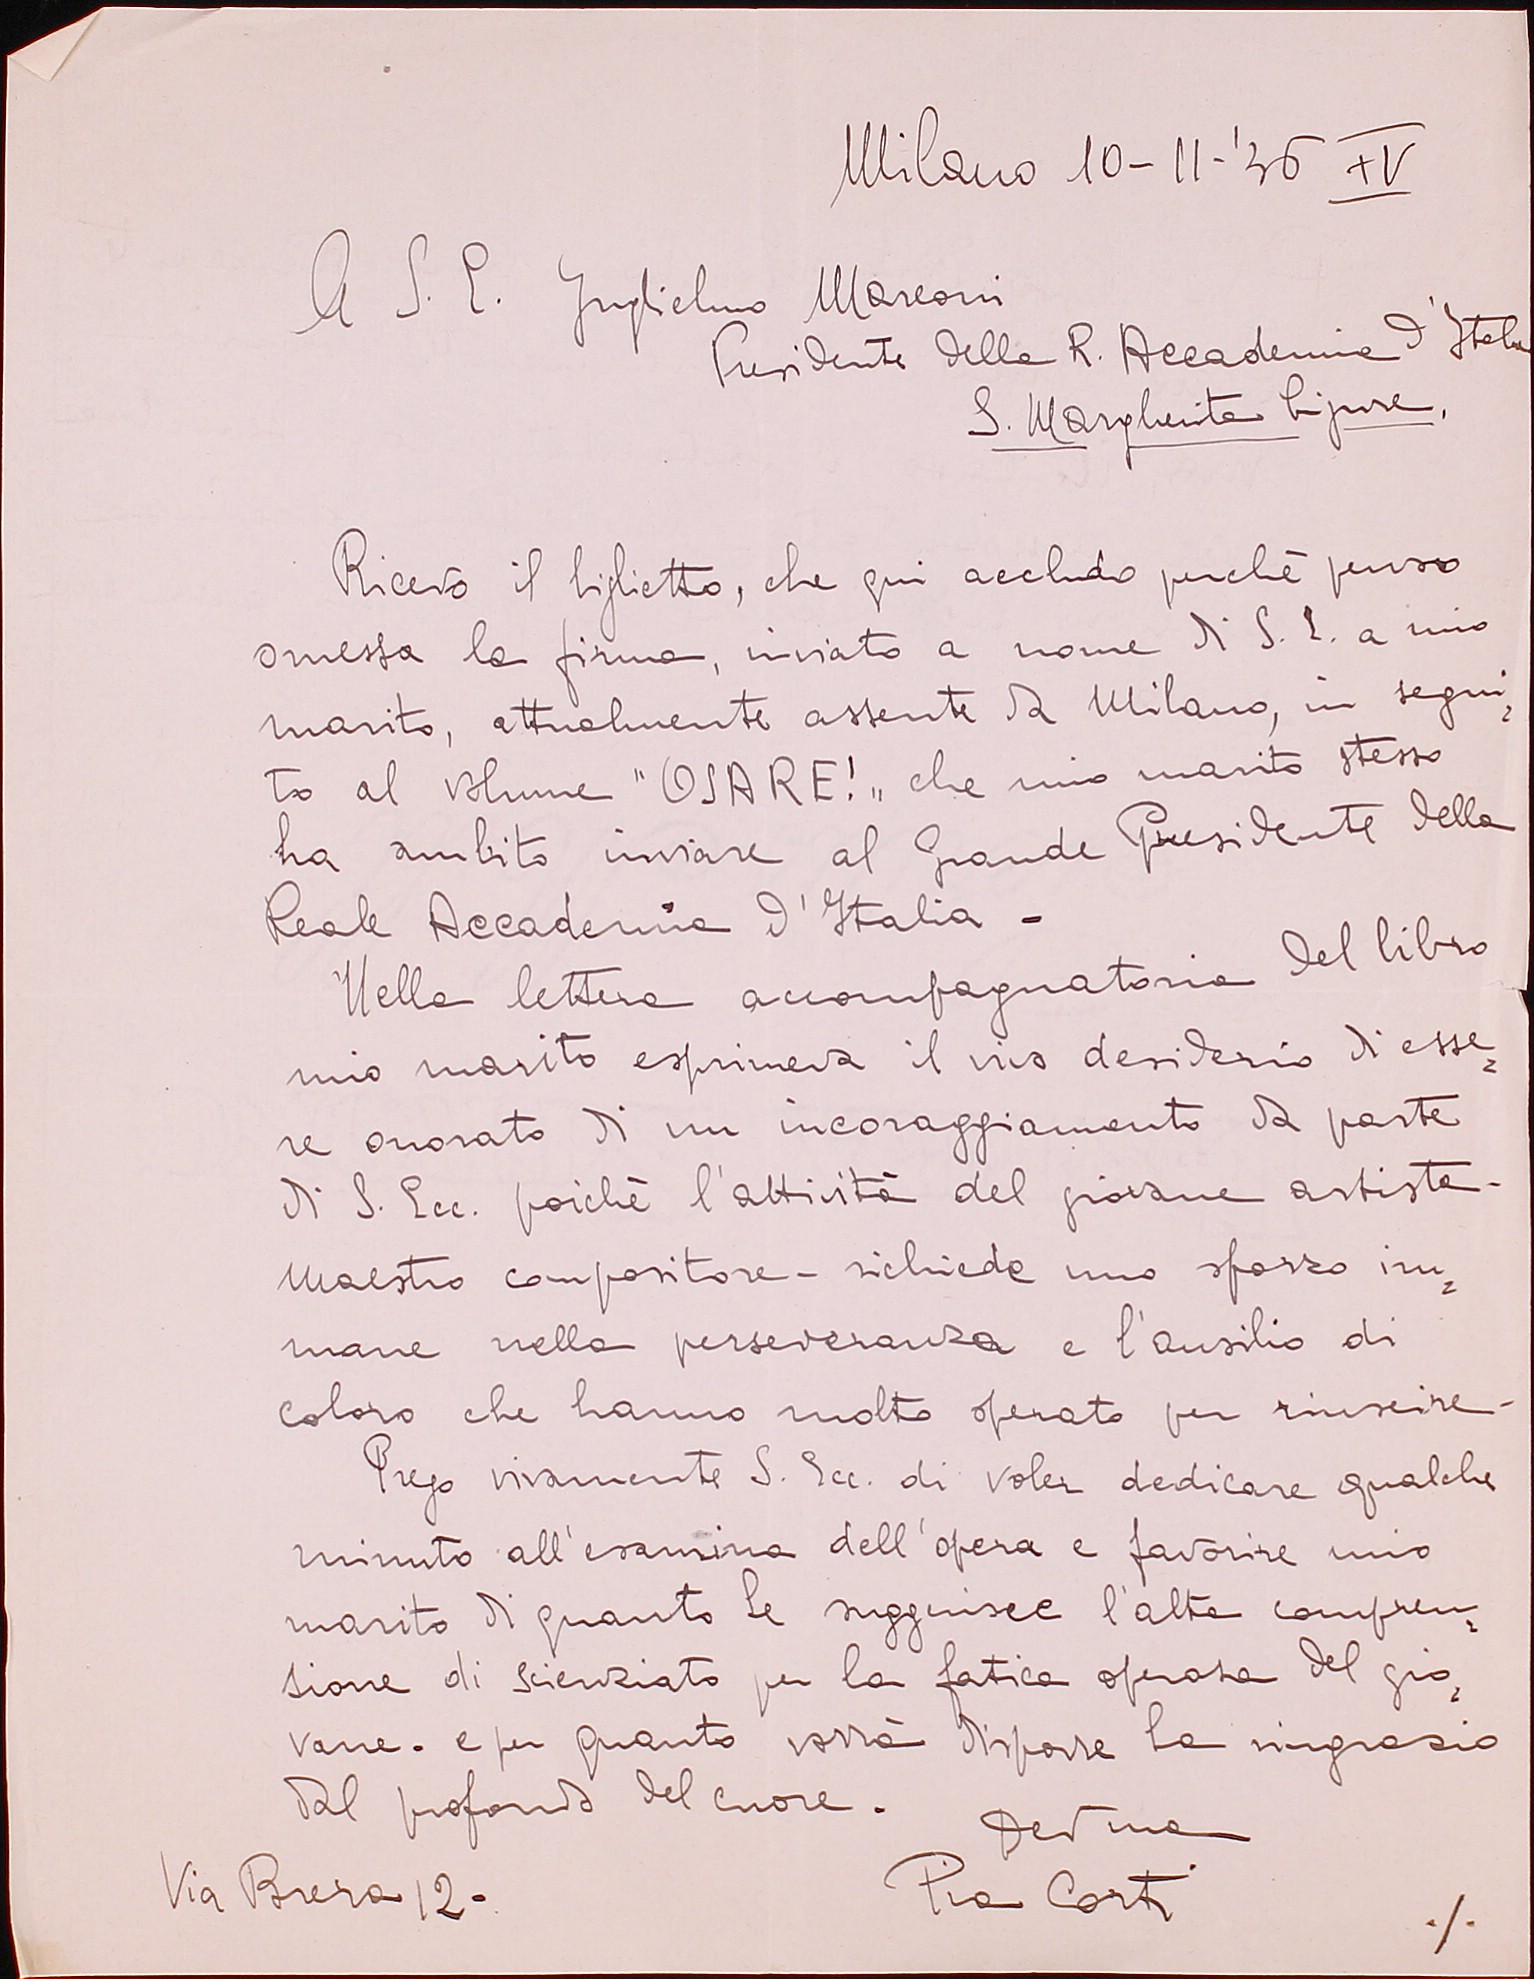 Milano 10-11-'36 XV
A S. E. Guglielmo Marconi
Presidente della R. Accademia d'Italia
S. Margherita Ligure.
Ricevo il biglietto, che qui accludo perchè penso
omessa la firma, inviato a nome di S. E. a mio
marito, attualmente assente da Milano, in segui=
to al volume "OSARE!" che mio marito stesso
ha ambito inviare al Grande Presidente della
Reale Accademia d'Italia -
Nella lettera accompagnatoria del libro
mio marito esprimeva il vivo desiderio di esse=
re onorato di un incoraggiamento da parte
di S. Ecc. poichè l'attività del giovane artista-
maestro compositore - richiede uno sforzo im=
mane nella perseveranza e l'ausilio di
coloro che hanno molto operato per riuscire -
Prego vivamente S. Ecc. di voler dedicare qualche
minuto all'esamina dell'opera e favorire mio
marito di quanto Le suggerisce l'alta compren=
sione di scienziato per la fatica operosa del gio=
vane. e per quanto vorrà disporre La ringrazio
dal profondo del cuore.
Dev ma
Pia Corti
Via Brera 12 -
./.